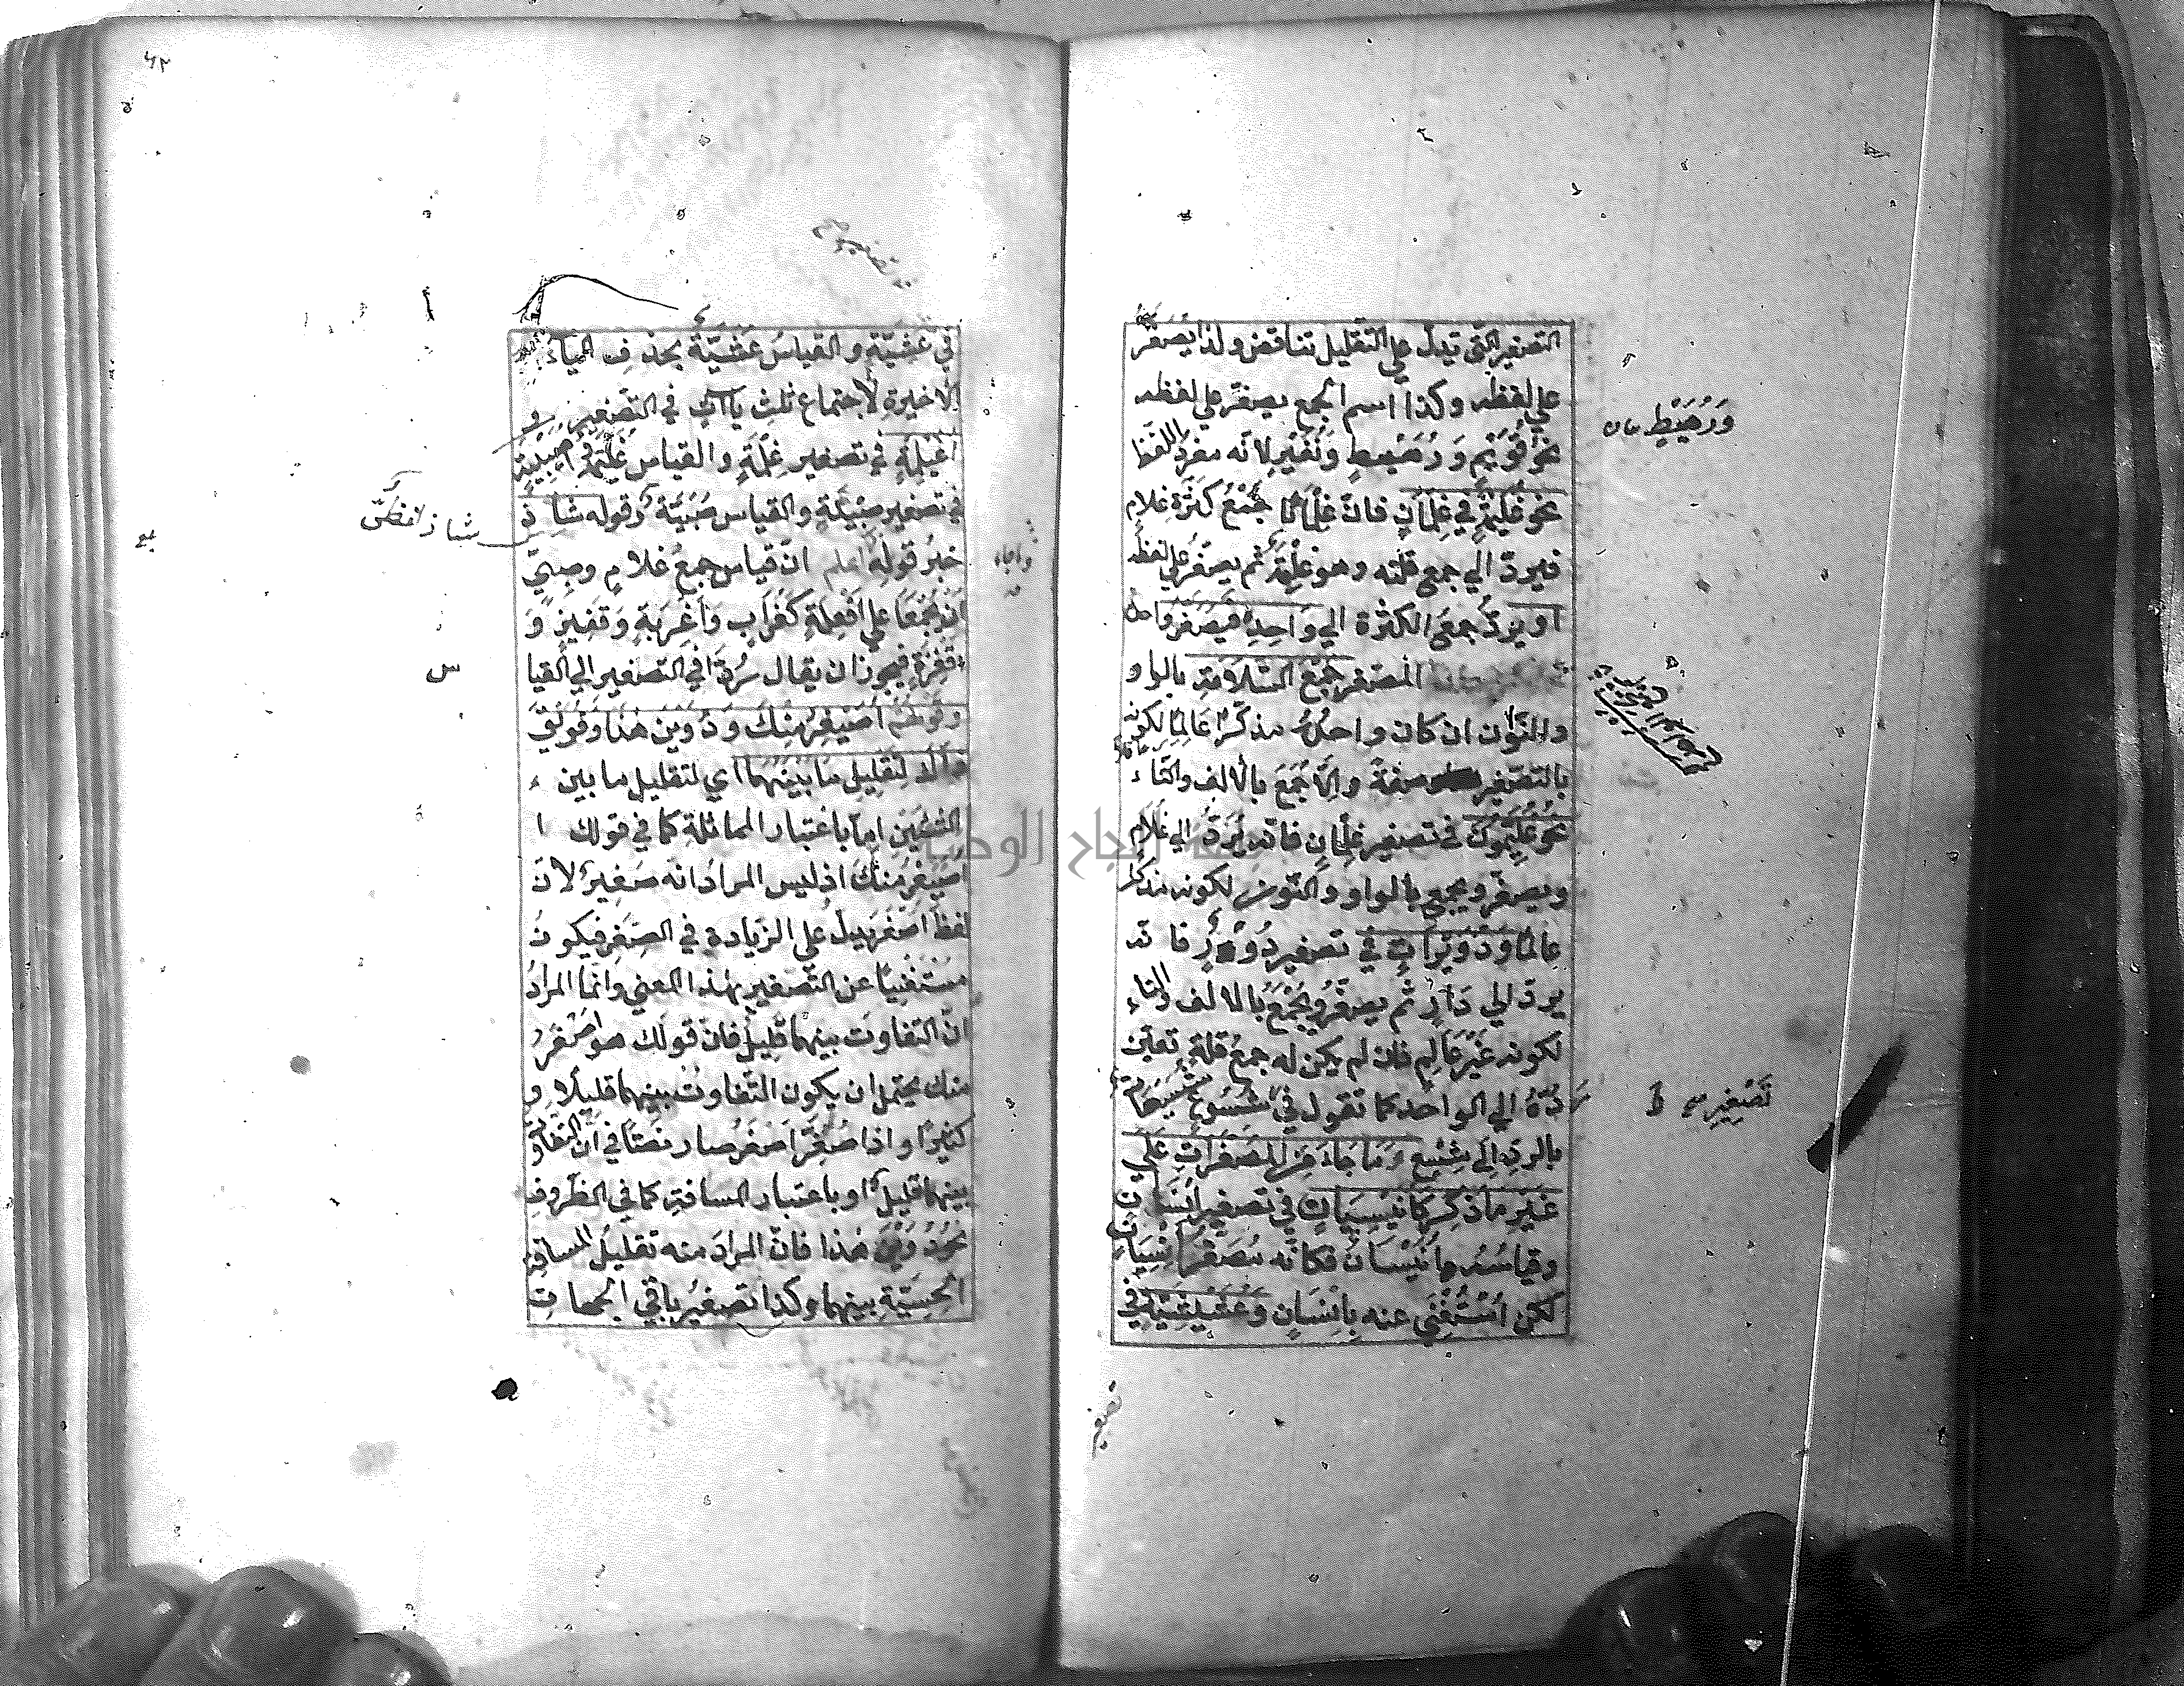 التصغير التي تدل علي التقليل تناقض ولذا يُصَغّر
علي لفظه وكذا اسم الجمع يصغّر علي لفظه
نحو قُوَيْمٍ وَرُهَيْطٍ وَنُفَيْرٍ لانّه مفرد اللفظ
وَرُهَيْطٍ
نحو غُلَيْمَةٍ في غِلمانٍ فانّ غِلْمَانًا جَمْعُ كَثْرَةِ غلامٍ
فيردّ الي جمع قلته وهو غِلْمَةٌ ثم يصَغّرُ علي لفظه
او يردّ جمعَ الكثرة الي وَاحِدِهِ فيصَغّر واحده
المصغر جَمْعَ السَّلَامَةِ بالواو
والنّون ان كان واحدُهُ مذكّرًا عَالِمًا لكونه
بالتّصغير صفةً والّا جُمِعَ بالالف والتّاء
نحو غُلَيِّمُونَ في تصغير غِلمانٍ فانّه يُرَدّ الي غلامٍ
ويصغّر ويجمع بالواو والنّون لكونه مذكرا
عالمًا وَدُوَيْرَاتٍ في تصغير دُورٍ فانه
يردّ الي دَارٍ ثم يصغّرُ ويُجْمَعُ بالالف والتاء
لكونه غَيْرَ عَالِمٍ فان لم يكن له جمعُ قلةٍ تعيّن
رَدّهُ الي الواحد كما تقول في شُسُوعٍ شُسَيْعَاتٌ
تَصْغِيرِ
بالردّ الي شِسْعٍ وَمَا جَاءَ مِنَ المصَغّرَاتِ عَلَي
غَيْرِ مَا ذُكِرَ كَأُنَيْسِيَانٍ في تصغير اِنْسَانٍ
وقياسُهُ أُنَيْسَانٌ فكانّه مُصَغّرُ اِنْسِيَانٍ
لكن اُسْتُغْنِيَ عنه بِاِنْسَانٍ وَعُشَيْشِيَةٍ في
تصغير
٤٢
في عَشِيّةٍ والقياسُ عُشَيّةٌ بحذفِ الياءِ
الاخيرة لاجتماع ثلثِ ياآتٍ في التّصغير و
اُغَيْلِمَةٍ في تصغير غِلْمَةٍ والقياس غُلَيْمَةٌ واُصَيْبِيَةٍ
في تصغير صِبْيَةٍ والقياس صُبَيّةٌ وقوله شاذّ
شاذ
خبرُ قولِهِ اعلم انّ قياس جمع غلامٍ وصبيّ
اَنْ يُجْمَعَا علي اَفْعِلَةٍ كَغُرَابٍ وَاَغْرِبَةٍ وَقَفِيزٍ وَ
اَقْفِزَةٍ فيجوز ان يقال رُدّا في التّصغير الي القيا
س
وقولهُم اُصَيْغِرُ مِنْكَ وَدُوَيْنَ هٰذَا وَفُوَيْقَ
هذا لِتَقْلِيلِ مَا بَيْنَهُمَا اي لتقليل ما بين
الشّيئين امّا باعتبار المماثلة كما في قولك
اُصَيْغِرُ مِنْكَ اذ ليس المرادُ انّه صَغِيرٌ لانّ
لفظَ اَصْغَر يدلّ علي الزّيادة في الصِّغَرِ فيكونُ
مستغنيًا عن التّصغير بهذا المعني وانّما المرادُ
انّ التّفاوتَ بينهما قليلٌ فانّ قولك هو اَصْغَرُ
منك يحتمل ان يكون التّفاوتُ بينهما قليلًا و
كثيرًا واذا صُغِّرَ اَصْغَرُ صار نَصًّا في انّ التّفاوت
بينهما قليلٌ او باعتبار المسافةِ كما في الظّروف
نحو دُوَيْنَ هٰذا فانّ المرادَ منه تقليلُ المسافةِ
الحِسِّيّةِ بينهما وكذا تصغيرُ باقي الجهاتِ